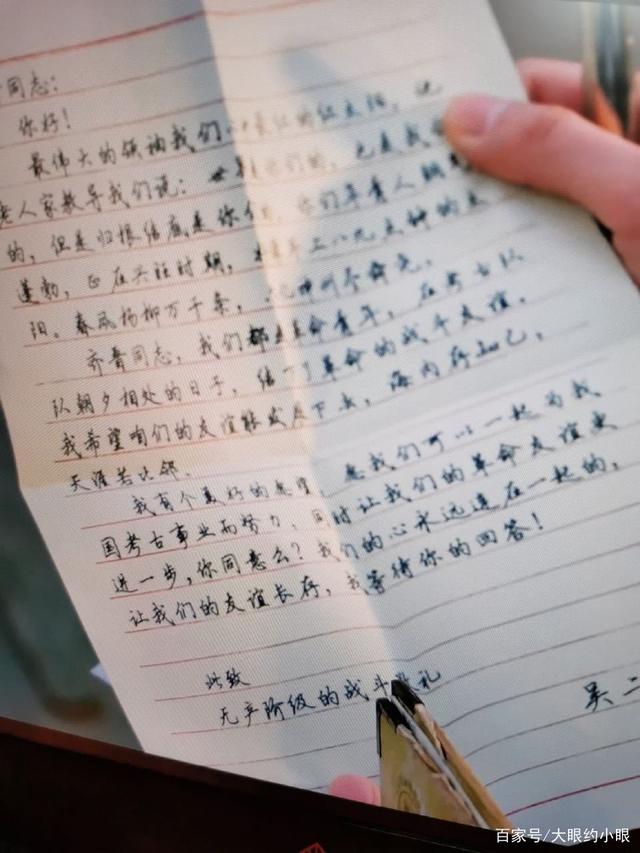 同志：
你好！
最伟大的领袖我们心中最红的红太阳，他
老人家教导我们说：世界是你们的，也是我
的，但是归根结底是你们，你们年青人朝
蓬勃，正在兴旺时期，早上八九点钟的太
阳。春风杨柳万千条，六亿神州尽舜尧。
齐晋同志，我们都是革命青年，在考古队
队朝夕相处的日子，结了革命的战斗友谊。
我希望咱们的友谊能发展下去，海内存知己，
天涯若比邻。
我有个美好的愿望，愿我们可以一起为我
国考古事业而努力，同时让我们的革命友谊更
进一步，你同意么？我们的心永远连在一起的，
让我们的友谊长存，我等待你的回答！
此致
无产阶级的战斗敬礼
吴二
百家号/大眼约小眼